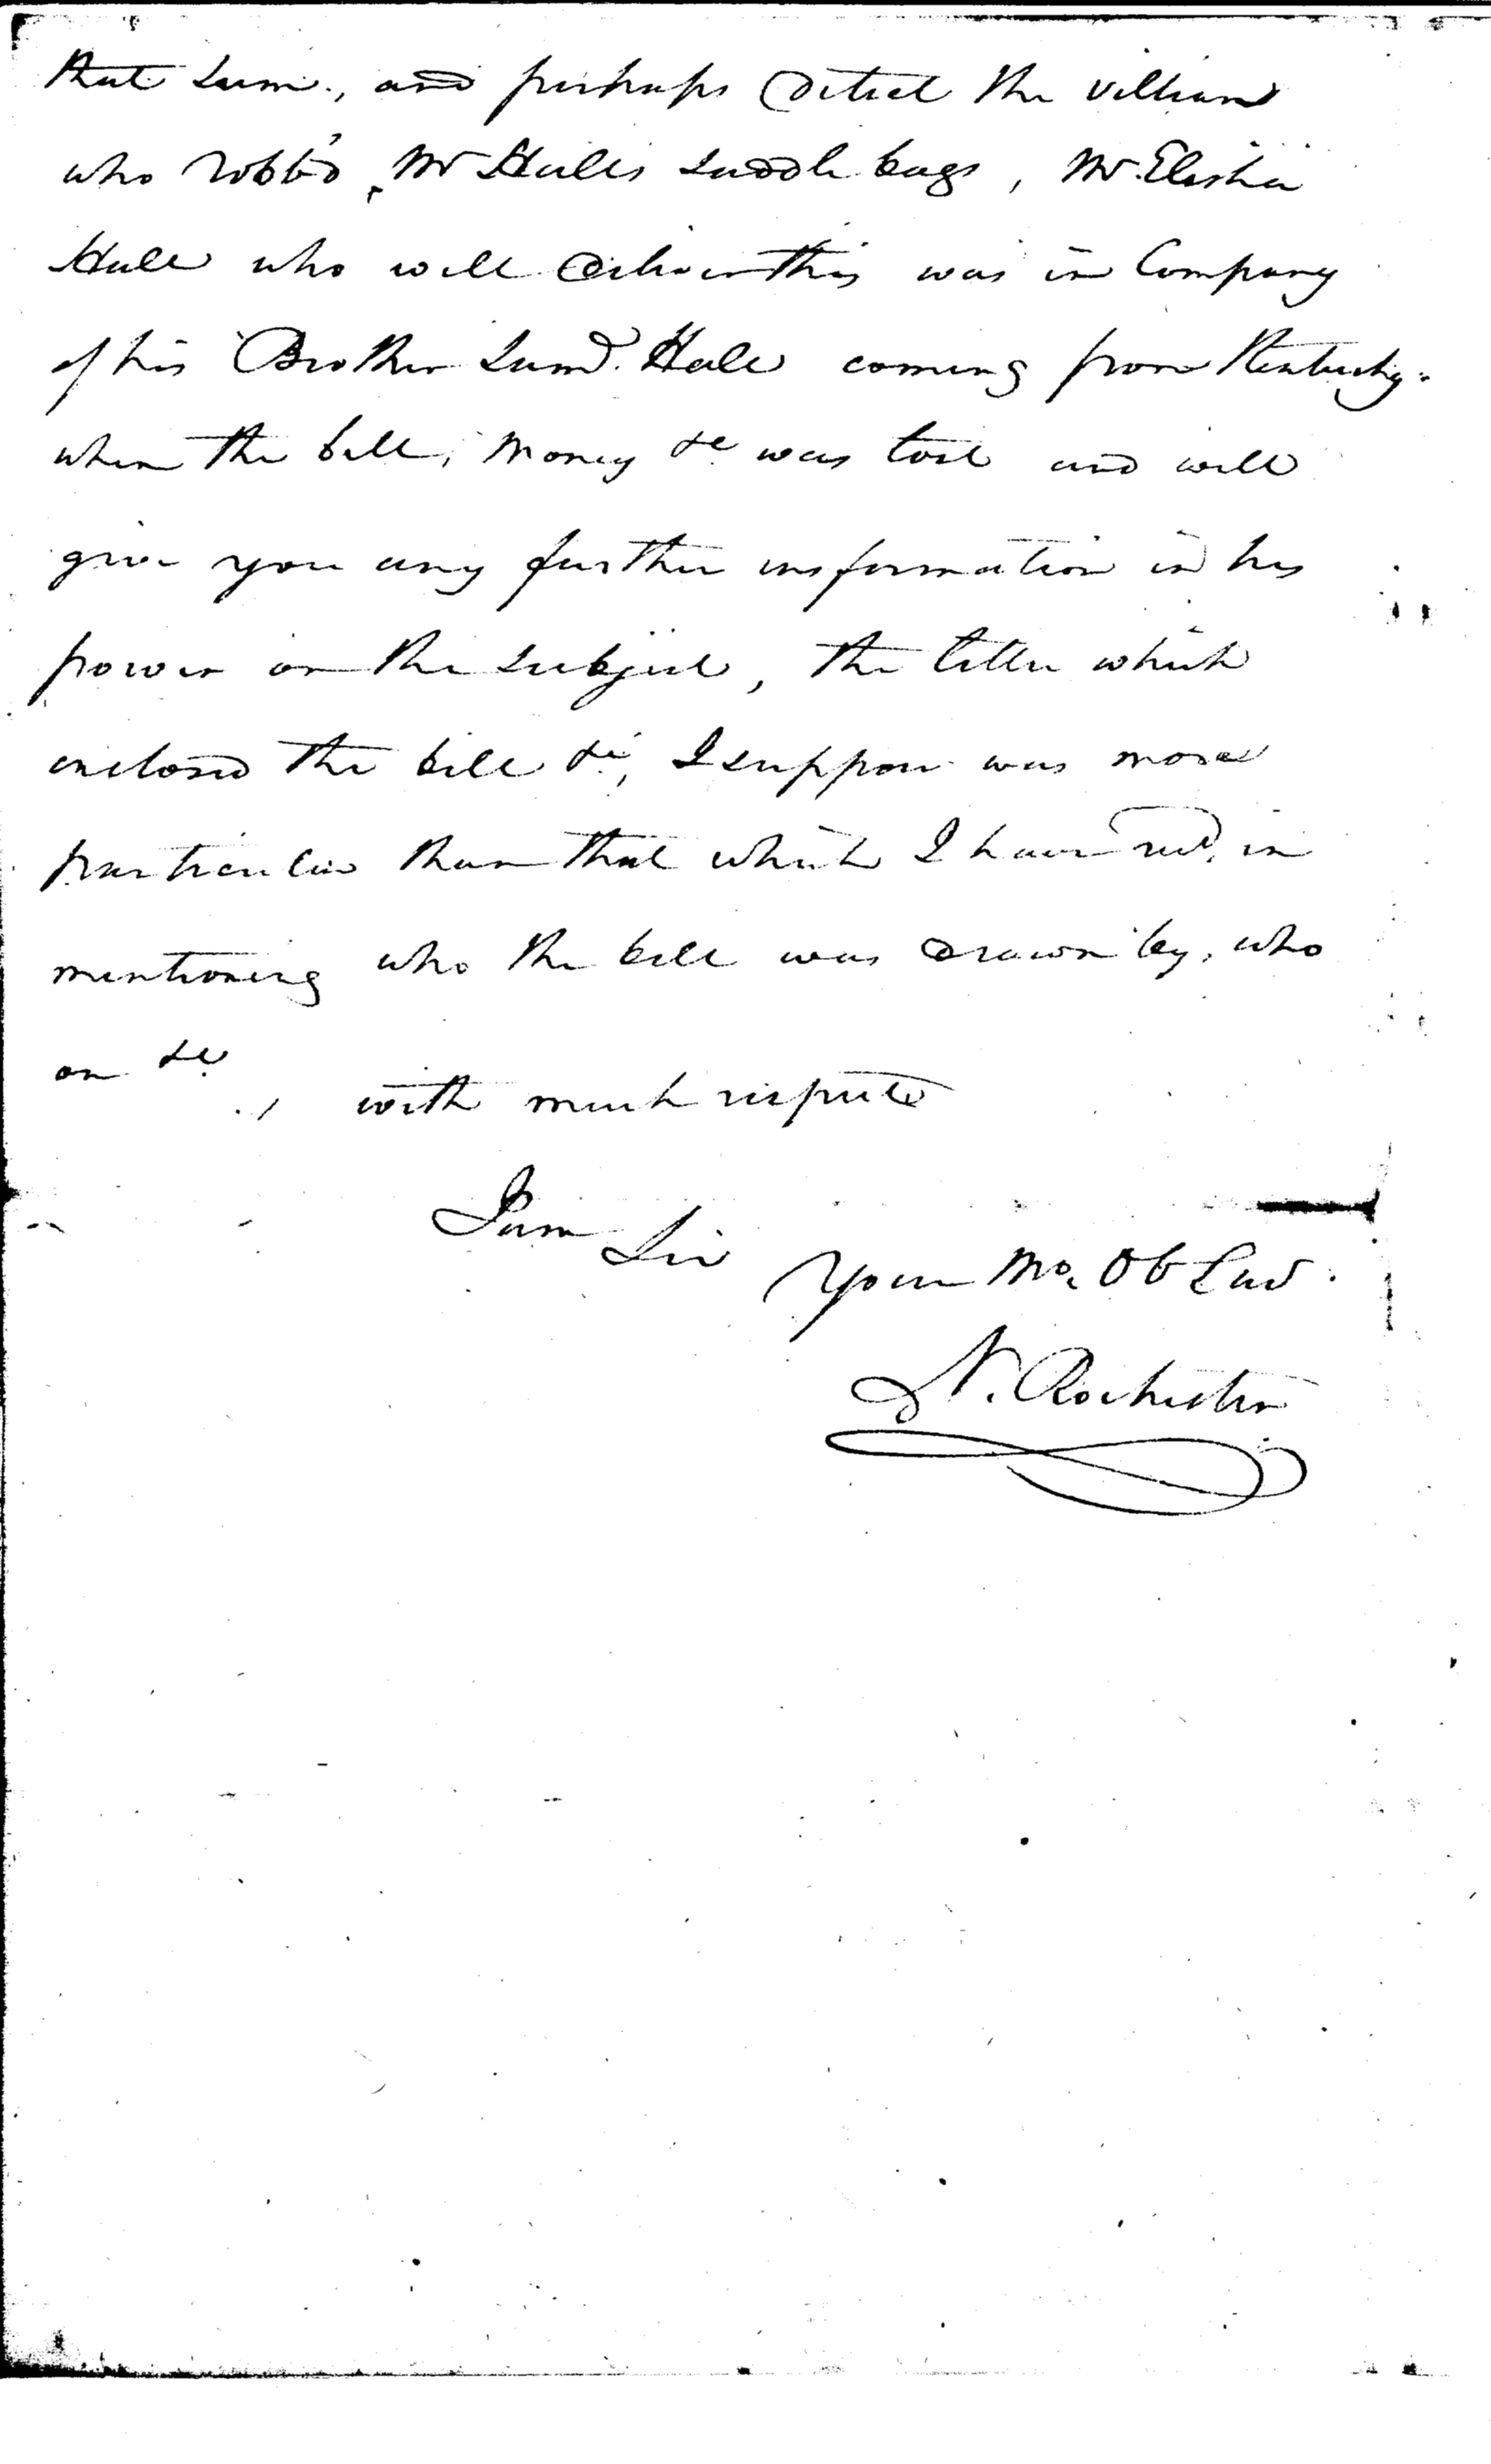 that Sum, and perhaps detect the villian
who robb'd Mr Halls Saddle bags, Mr. Elisha
Hall who will deliver this was in Company
of his Brother Saml. Hall coming from Kentucky
when the bill, money &c was lost and will
give you any further information in his
power on the subject, the letter which
enclosed the bill &c, I suppose was more
particular than that which I have recd. in
mentioning who the bill was drawn by, who
on &c.
with much respect
I am Sir your Mo. Ob Serv.
N. Rochester